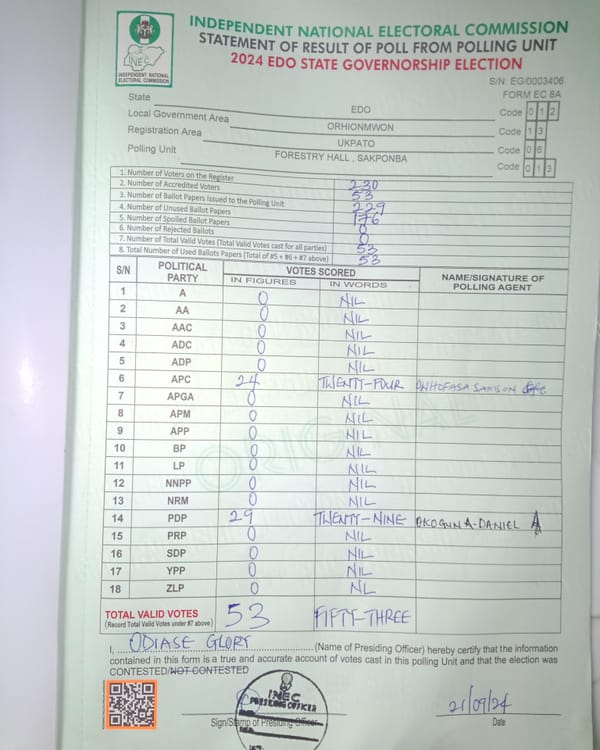 INDEPENDENT NATIONAL ELECTORAL COMMISSION
STATEMENT OF RESULT OF POLL FROM POLLING UNIT
2024 EDO STATE GOVERNORSHIP ELECTION
INEC
INDEPENDENT NATIONAL ELECTORAL COMMISSION
S/N: EG/0003406
FORM EC 8A
State EDO Code 0 1 2
Local Government Area ORHIONMWON Code 1 3
Registration Area UKPATO Code 0 6
Polling Unit FORESTRY HALL , SAKPONBA Code 0 1 3
1. Number of Voters on the Register 230
2. Number of Accredited Voters 53
3. Number of Ballot Papers Issued to the Polling Unit 229
4. Number of Unused Ballot Papers 176
5. Number of Spoiled Ballot Papers 0
6. Number of Rejected Ballots 0
7. Number of Total Valid Votes (Total Valid Votes cast for all parties) 53
8. Total Number of Used Ballots Papers (Total of #5 + #6 + #7 above) 53
S/N POLITICAL PARTY VOTES SCORED NAME/SIGNATURE OF POLLING AGENT
IN FIGURES IN WORDS
1 A 0 NIL
2 AA 0 NIL
3 AAC 0 NIL
4 ADC 0 NIL
5 ADP 0 NIL
6 APC 24 TWENTY-FOUR SAMSON
7 APGA 0 NIL
8 APM 0 NIL
9 APP 0 NIL
10 BP 0 NIL
11 LP 0 NIL
12 NNPP 0 NIL
13 NRM 0 NIL
14 PDP 29 TWENTY-NINE OKOGUN A. DANIEL
15 PRP 0 NIL
16 SDP 0 NIL
17 YPP 0 NIL
18 ZLP 0 NL
ORIGINAL
TOTAL VALID VOTES 53 FIFTY-THREE
(Record Total Valid Votes under #7 above)
I, ODIASE GLORY (Name of Presiding Officer) hereby certify that the information
contained in this form is a true and accurate account of votes cast in this polling Unit and that the election was
CONTESTED/NOT CONTESTED
INEC
PRESIDING OFFICER
21/09/24
Sign/Stamp of Presiding Officer Date